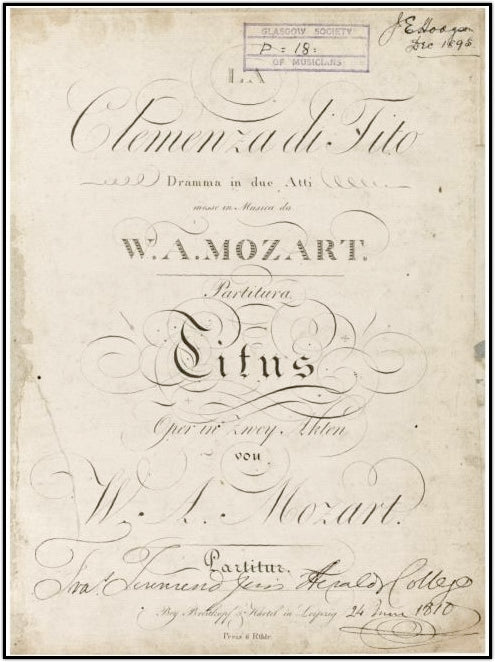 GLASGOW SOCIETY
P = 18 =
OF MUSICIANS
J E Hodgson
Dec 1895
LA
Clemenza di Tito
Dramma in due Atti
messe in Musica da
W. A. MOZART.
Partitura.
Titus
Oper in Zwey Akten
von
W. A. Mozart.
Partitur.
Fra.s Townsend Heralds College
Bey Breitkopf & Härtel in Leipzig 24 1810
Preis 6 Rthlr.